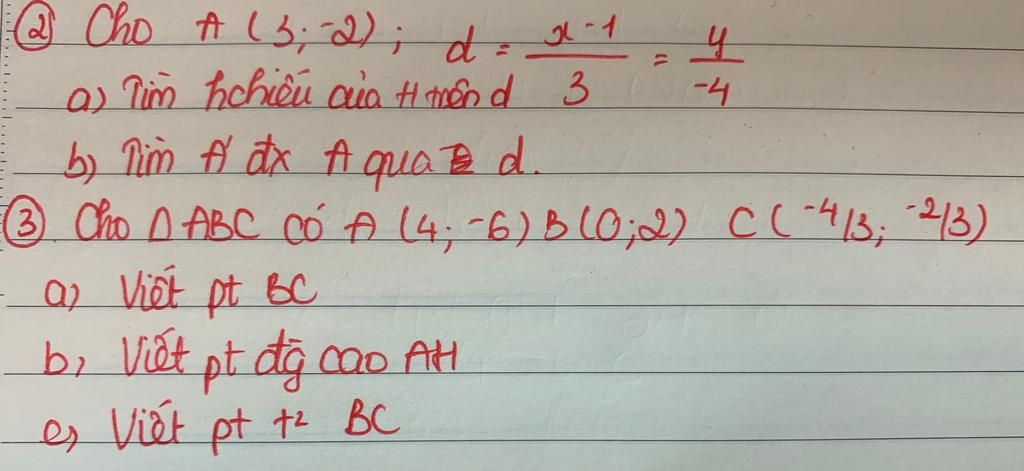 ② Cho A (3; -2); d = x-1/3 = y/-4
a) Tìm hchiếu của H trên d
b) Tìm A' đx A qua d.
③ Cho Δ ABC có A (4; -6) B (0; 2) C (-4/3; -2/3)
a) Viết pt BC
b) Viết pt đg cao AH
c) Viết pt t² BC